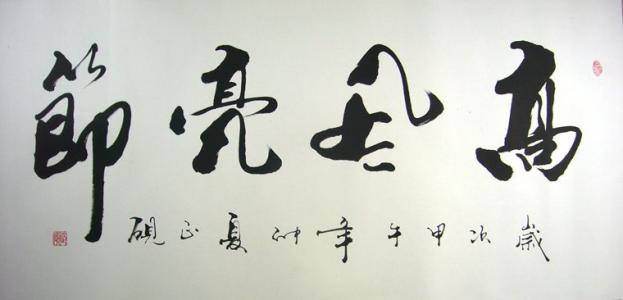 高風亮節
歲次甲午年仲夏正硯